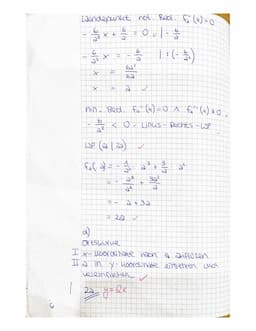 Wendepunkt not. Bed. fa''(x)=0
- 6/a² x + 6/a = 0 | - 6/a
- 6/a² x = - 6/a | : (- 6/a²)
x = 6a²/6a
x = a ✓
hin. Bed. fa''(x)=0 ∧ fa'''(x)≠0
- 6/a² < 0 - Links-Rechts-WP
WP (a | 2a) ✓
fa(a) = - 1/a² · a³ + 3/a · a²
= - a³/a² + 3a²/a
= - a + 3a
= 2a ✓
d)
Ortskurve
I x-Koordinate nach a auflösen
II a in y-Koordinate einsetzen und
vereinfachen ✓
2a y=2x
6